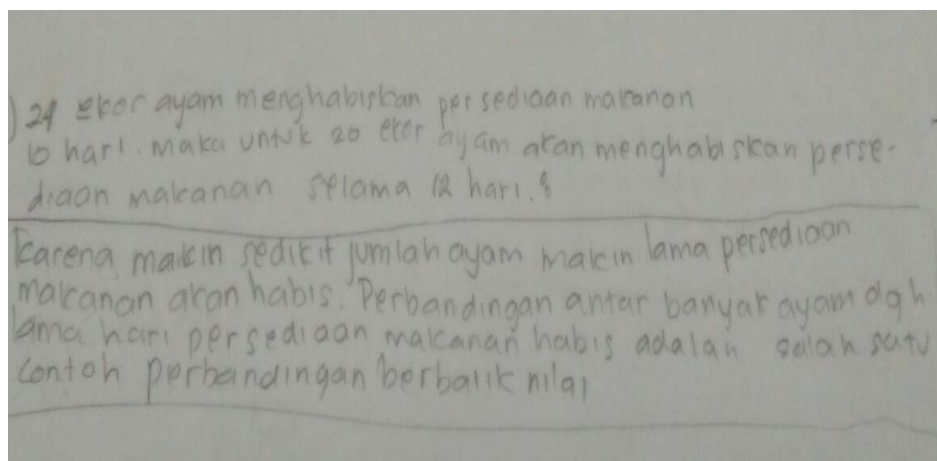 ) 24 ekor ayam menghabiskan persediaan makanan
10 hari. maka untuk 20 ekor ayam akan menghabiskan perse-
diaan makanan selama 12 hari.
Karena makin sedikit jumlah ayam makin lama persediaan
makanan akan habis. Perbandingan antar banyak ayam dgn
lama hari persediaan makanan habis adalah salah satu
contoh perbandingan berbalik nilai